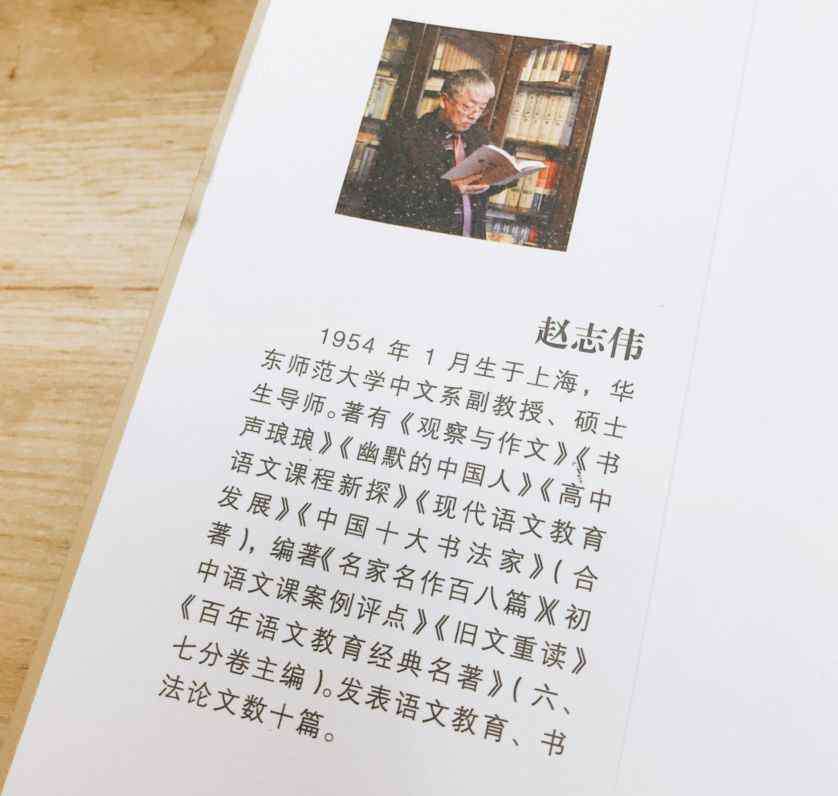 赵志伟
1954 年 1 月生于上海，华
东师范大学中文系副教授、硕士
生导师。著有《观察与作文》《书
声琅琅》《幽默的中国人》《高中
语文课程新探》《现代语文教育
发展》《中国十大书法家》（合
著），编著《名家名作百八篇》《初
中语文课案例评点》《旧文重读》
《百年语文教育经典名著》（六、
七分卷主编）。发表语文教育、书
法论文数十篇。